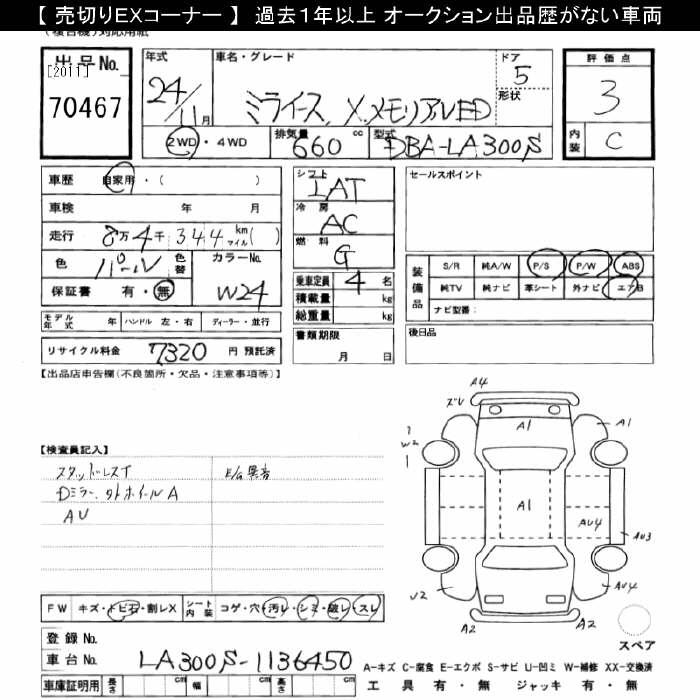 【 売切りEXコーナー 】 過去1年以上 オークション出品歴がない車両
出品No. [2011] 70467
年式 24/11月
車名・グレード ミライース, X メモリアルED
ドア 5
形状
評価点 3
内装 C
2WD・4WD
排気量 660 cc
型式 DBA-LA300S
車歴 自家用・( )
車検 年 月
走行 8万4千344 km マイル( )
色 パール 色替
カラーNo. W24
保証書 有・無
モデル年式 年 ハンドル 左・右 ディーラー・並行
リサイクル料金 7320 円 預託済
シフト IAT
冷房 AC
燃料 G
乗車定員 4 名
積載量 kg
総重量 kg
書類期限
月 日
セールスポイント
装備品 S/R 純A/W P/S P/W ABS
純TV 純ナビ 革シート 外ナビ エアB
ナビ型番:
後日品
【出品店申告欄(不良箇所・欠品・注意事項等)】
【検査員記入】
スタッドレスT
E/G異音
Dミラー, タトホイールA
AU
A4
ズレ
A1
A1
W2
A1
AU4
AU3
U2
AU4
A2
A2
スペア
FW キズ・トビ石・割レX シート内装 コゲ・穴・汚レ・シミ・破レ・スレ
登録No.
車台No. LA300S-1136450
車庫証明用 長さ cm 幅 cm 高さ cm
A-キズ C-腐食 E-エクボ S-サビ U-凹ミ W-補修 XX-交換済
工具 有・無 ジャッキ 有・無